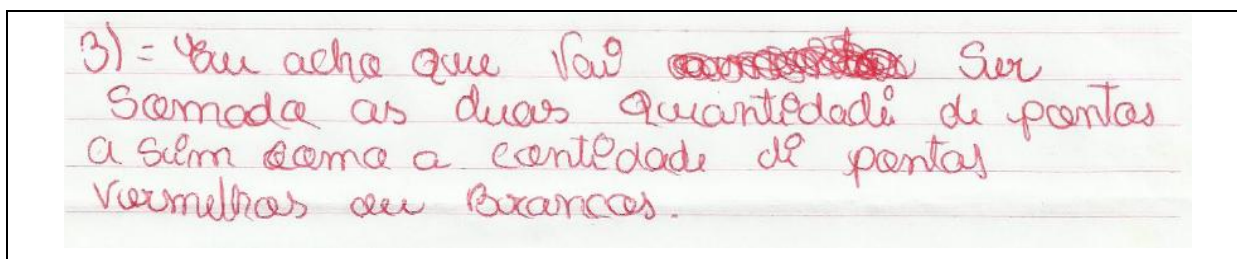 3) = Eu acho que Vai Ser
Somada as duas quantidadi de pontos
a sim como a cantidade di pontos
Vermelhos ou Brancos.